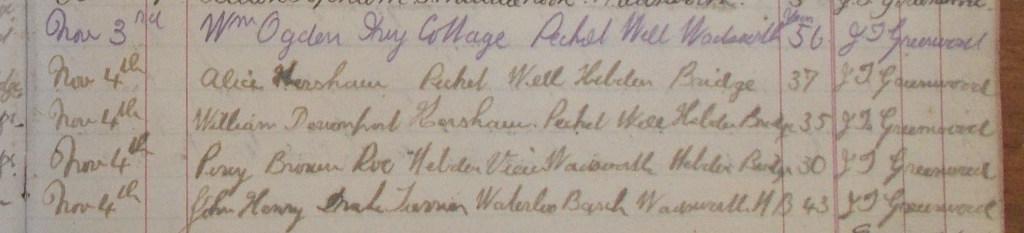 Nov 3rd Wm Ogden Ivy Cottage Pecket Well Wadsworth Years 56 J T Greenwood
Nov 4th Alice Horsham Pecket Well Hebden Bridge 37 J T Greenwood
Nov 4th William Devonport Horsham Pecket Well Hebden Bridge 35 J T Greenwood
Nov 4th Percy Brown Roe Hebden View Wadsworth Hebden Bridge 30 J T Greenwood
Nov 4th John Henry Drake Waterloo Wadsworth H B 43 J T Greenwood